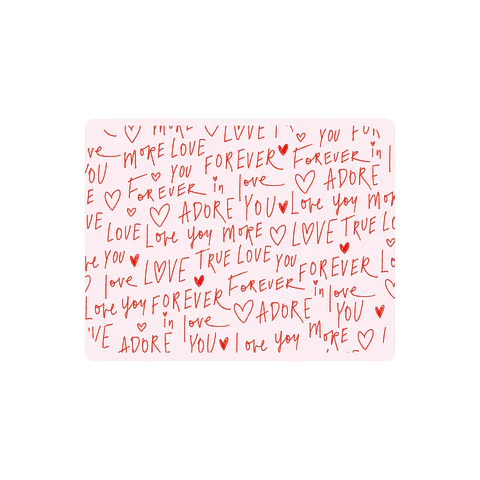 MORE LOVE TR YOU FOR
ve MORE LOVE FOREVER FOREVER in
YOU FOREVER YOU in love ADORE
E ADORE YOU Love you MOR
VE LOVE Love you MORE LOVE TRUE LO
ve YOU LOVE TRUE LOVE YOU FOREVER L
love FOREVER FOREVER in love
Love you FOREVER ADORE YOU
VE in love MORE
ADORE YOU Love you